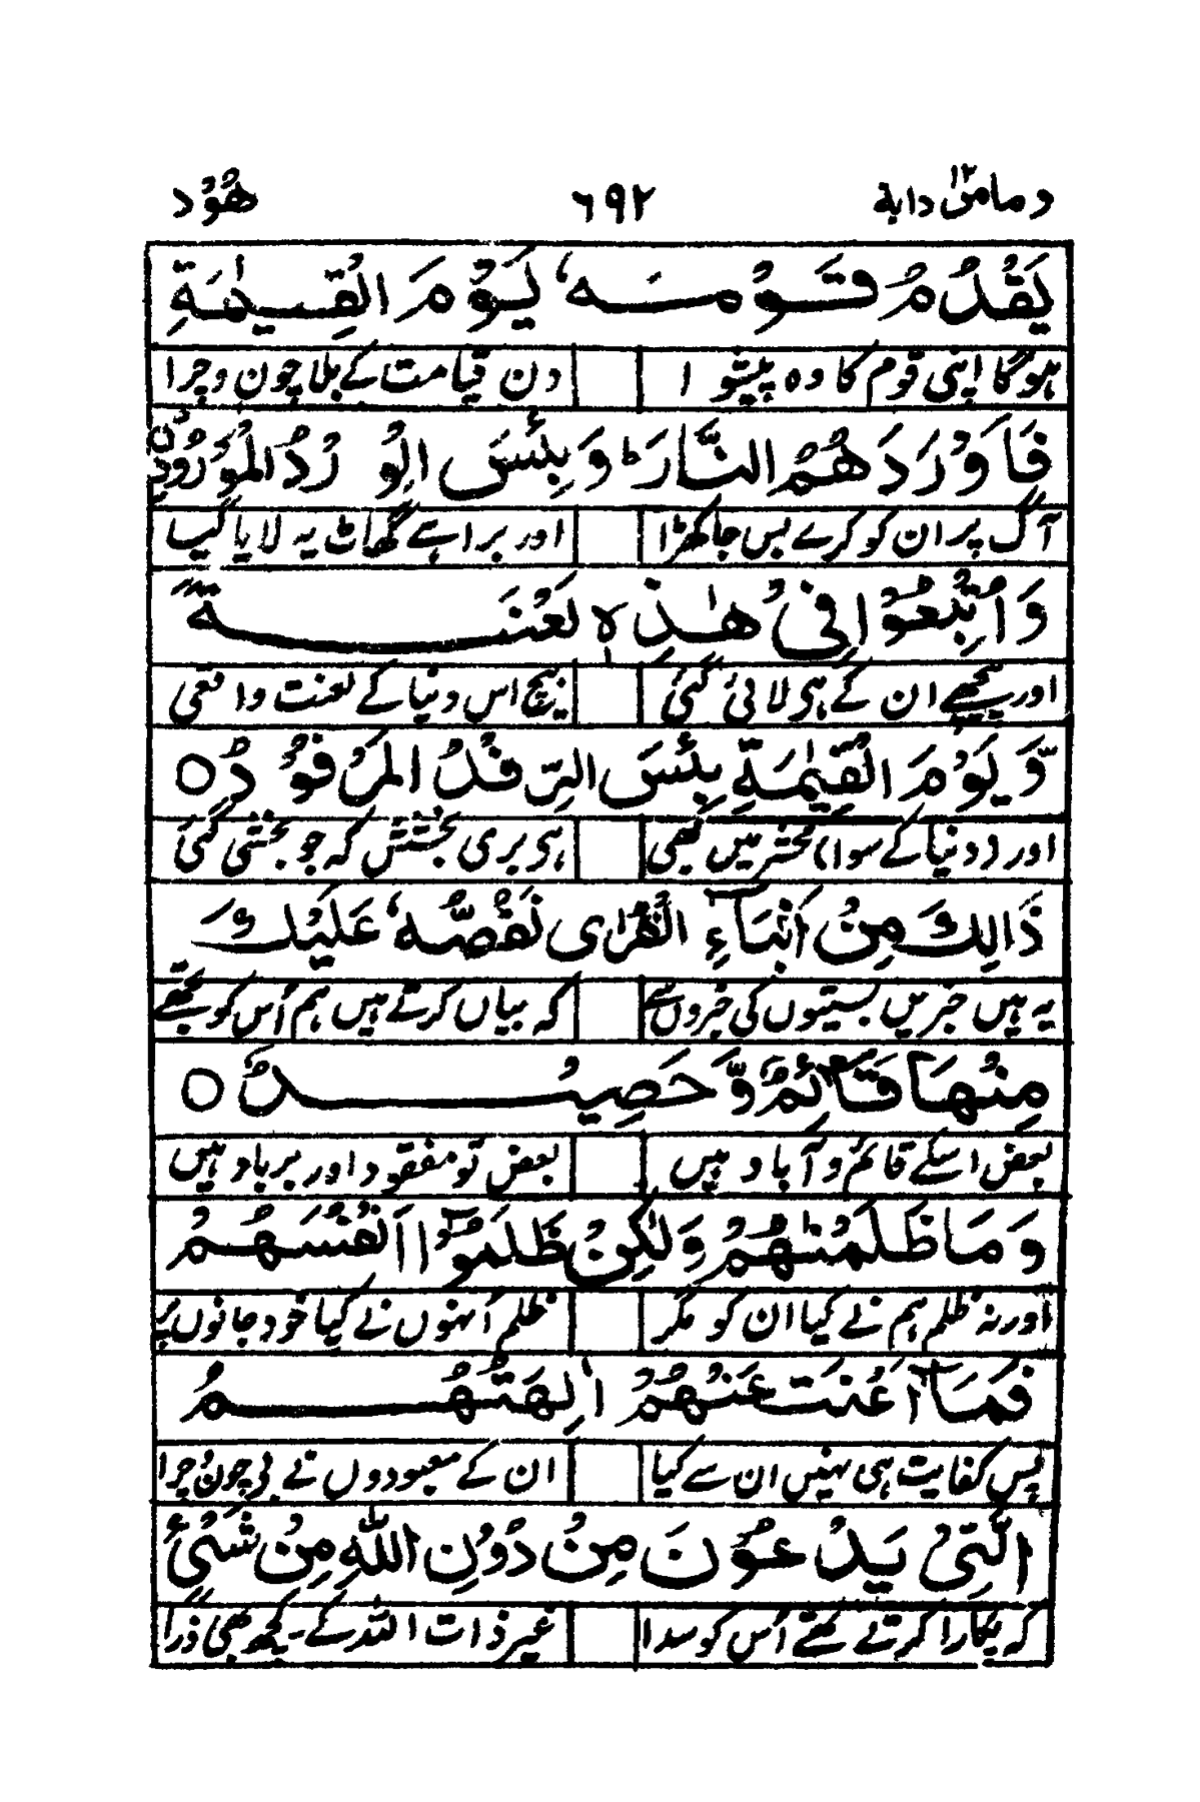 ومامن دابة ۱۲ ٦٩٢ هُوُد
يَقْدُمُ قَوْمَهٗ يَوْمَ الْقِيٰمَةِ
ہوگا اپنی قوم کا وہ پیشوا دن قیامت کے بلا چون و چرا
فَاَوْرَدَهُمُ النَّارَ ؕ وَبِئْسَ الْوِرْدُ الْمَوْرُوْدُ ○
آگ پر ان کو کرے بس جا کھڑا اور برا ہے گھاٹ یہ لایا گیا
وَاُتْبِعُوْا فِیْ هٰذِهٖ لَعْنَةً
اور پیچھے ان کے ہی لائی گئی بیچ اس دنیا کے لعنت واقعی
وَّيَوْمَ الْقِيٰمَةِ بِئْسَ الرِّفْدُ الْمَرْفُوْدُ ○
اور (دنیا کے سوا) محشر میں بھی ہی بری بخشش کہ جو بخشی گئی
ذَالِكَ مِنْ اَنْۢبَآءِ الْقُرٰى نَقُصُّهٗ عَلَيْكَ
یہ ہیں خبریں بستیوں کی خبروں سے کہ بیاں کرتے ہیں ہم اُس کو تجھے
مِنْهَا قَآئِمٌ وَّ حَصِيْدٌ ○
بعض اسکے قائم و آباد ہیں بعض تو مفقود اور برباد ہیں
وَمَا ظَلَمْنٰهُمْ وَلٰكِنْ ظَلَمُوْٓا اَنْفُسَهُمْ
اور نہ ظلم ہم نے کیا ان کو مگر ظلم اُنہوں نے کیا خود جانوں پر
فَمَآ اَغْنَتْ عَنْهُمْ اٰلِهَتُهُمْ
پس کفایت ہی نہیں ان سے کیا ان کے معبودوں نے بی چون چرا
الَّتِیْ يَدْعُوْنَ مِنْ دُوْنِ اللّٰهِ مِنْ شَیْءٍ
کہ پکارا کرتے تھے اُس کو سدا غیر ذات اللہ کے۔ کچھ بھی ذرا